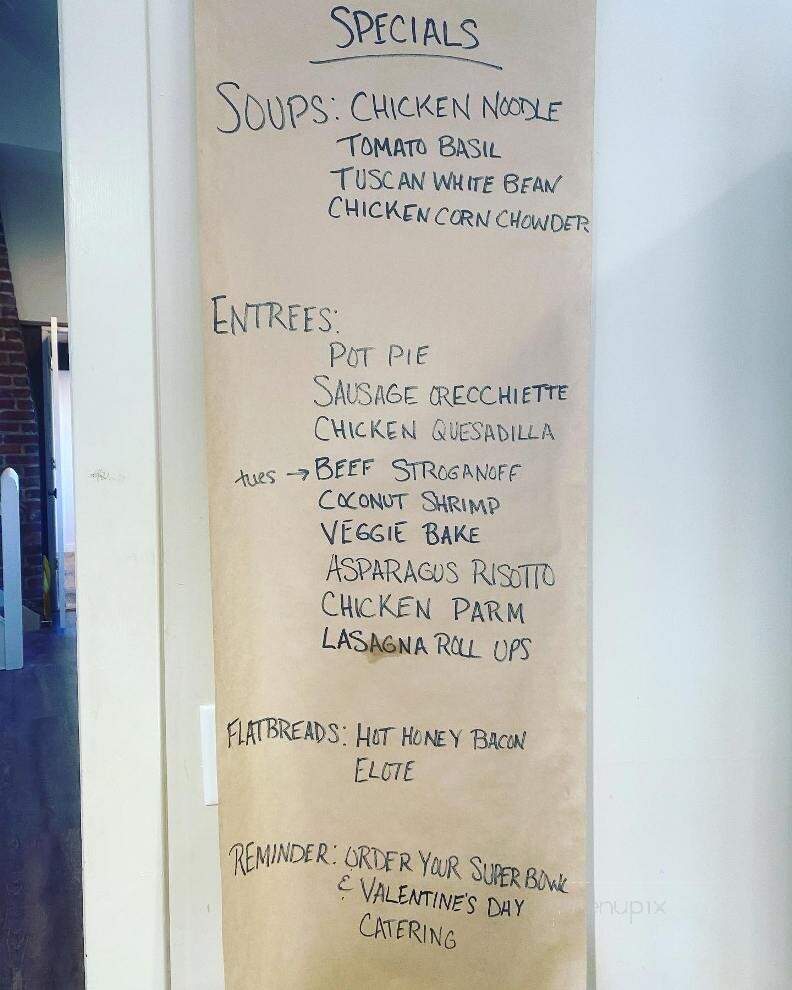 SPECIALS
SOUPS: CHICKEN NOODLE
TOMATO BASIL
TUSCAN WHITE BEAN
CHICKEN CORN CHOWDER
ENTREES:
POT PIE
SAUSAGE ORECCHIETTE
CHICKEN QUESADILLA
tues → BEEF STROGANOFF
COCONUT SHRIMP
VEGGIE BAKE
ASPARAGUS RISOTTO
CHICKEN PARM
LASAGNA ROLL UPS
FLATBREADS: HOT HONEY BACON
ELOTE
REMINDER: ORDER YOUR SUPER BOWL
& VALENTINE'S DAY
CATERING